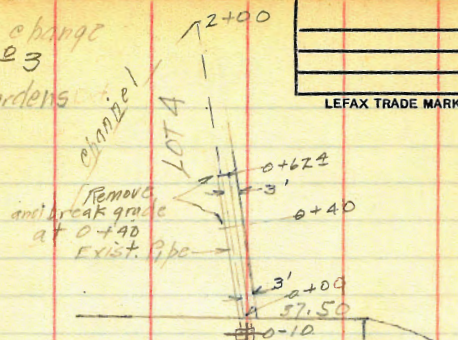 change
o 3
rdens
2+00
LEFAX TRADE MARK
channel
LOT 4
0+624
3'
Remove
and break grade
at 0+40
0+40
Exist. Pipe
3'
0+00
57.50
0-10